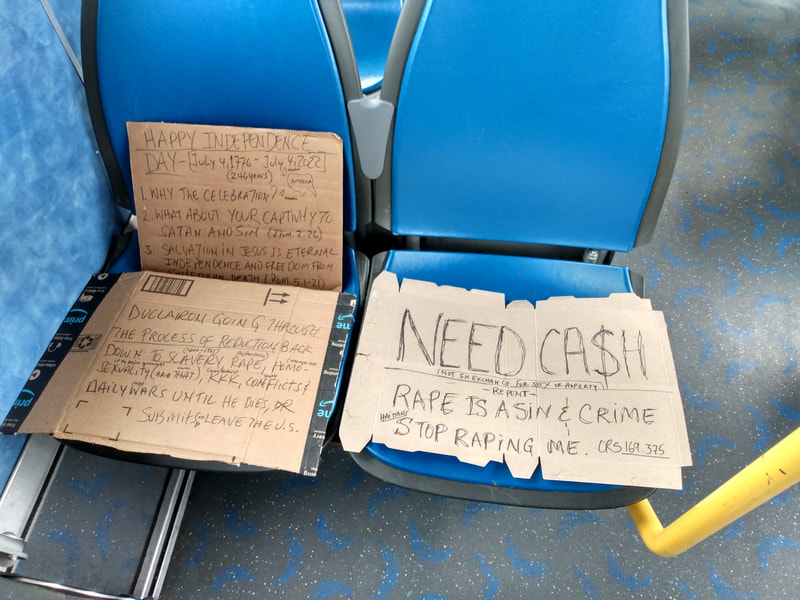 HAPPY INDEPENDENCE
DAY- [July 4,1776 - July 4,2022]
(246 years)
AMERICA
1. WHY THE CELEBRATION?
2. WHAT ABOUT YOUR CAPTIVITY TO
SATAN AND SIN (2Tim. 2:26)
3. SALVATION IN JESUS IS ETERNAL
INDEPENDENCE AND FREEDOM FROM
DEATH (Rom. 5:1-21)
DUCLAIRON GOING THROUGH
THE PROCESS OF REDUCTION BACK
DOWN TO SLAVERY, RAPE, HOMO-
SEXUALITY (and THAT), KKK, CONFLICTS &
DAILY WARS UNTIL HE DIES, OR
SUBMITS LEAVE THE U.S.
prime
NEED CA$H
(NOT IN EXCHANGE FOR SEX OR PROPERTY)
REPENT-
RAPE IS A SIN & CRIME
HAITIANS
STOP RAPING ME. ORS 169.375